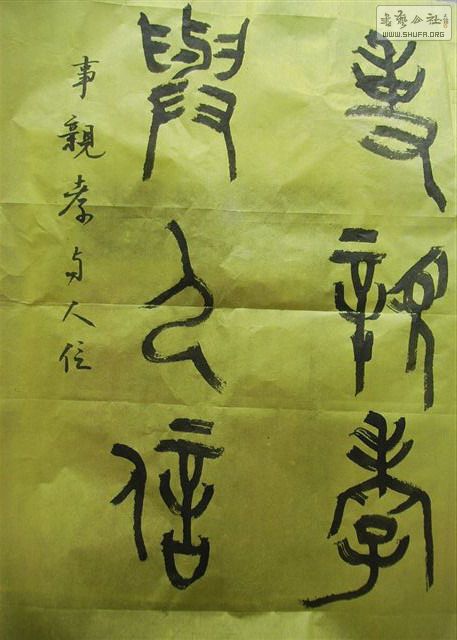 事親孝
與人信
事親孝与人信
書藝公社
WWW.SHUFA.ORG